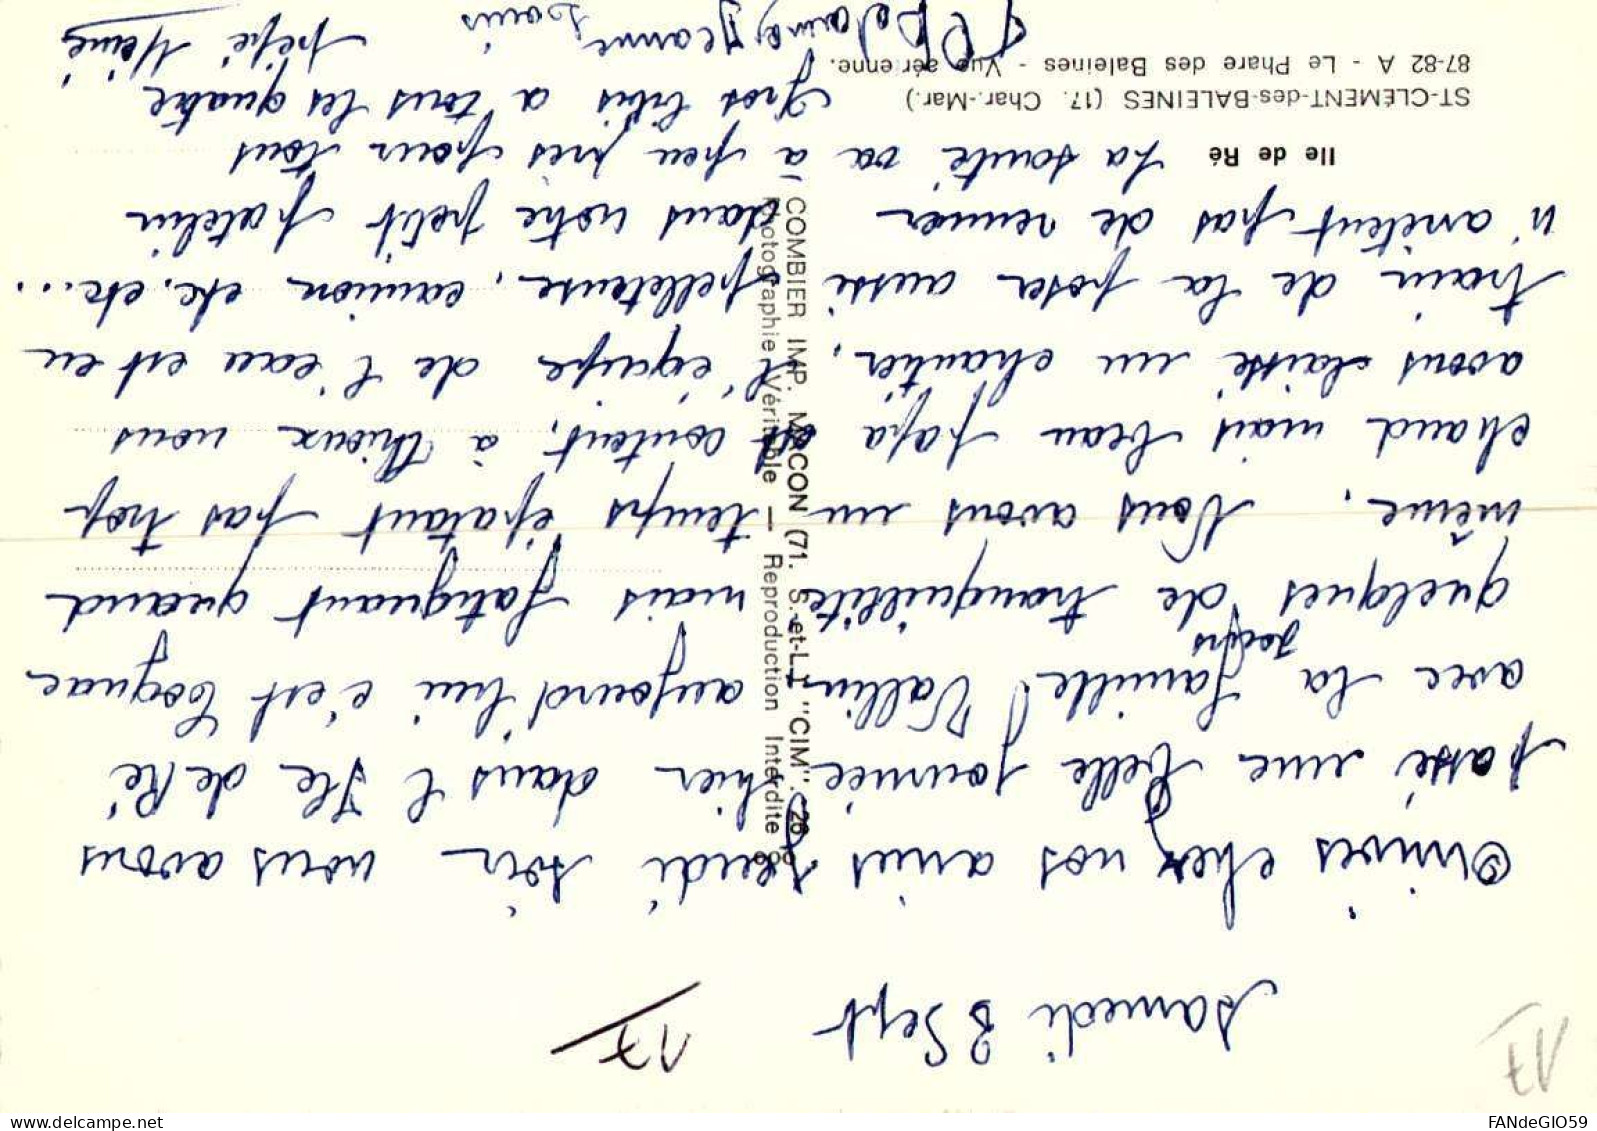 17
17
Samedi 3 Sept
Arrivés chez nos amis Jeudi soir nous avons
passé une belle journée hier dans l'Ile de Ré
avec la famille Vallin aujourd'hui c'est Cognac
quelques jours de tranquillité mais fatiguant quand
même. Nous avons un temps épatant pas trop
chaud mais beau papa est content, à Thioux nous
avons laissé un chantier, l'équipe de l'eau est en
train de la poser aussi pelleteuse, camion, etc. etc...
n'arrêtent pas de remuer dans notre petit patelin
La santé va à peu près pour tous
Gros bibis a tous les quatre
Jeanne Louis pépé Mémé
Ile de Ré
ST-CLÉMENT-des-BALEINES (17. Char.-Mar.)
87-82 A - Le Phare des Baleines - Vue aérienne.
COMBIER IMP. MACON (71. S.-et-L.) "CIM".
Photographie Véritable — Reproduction Interdite
FANdeGIO59